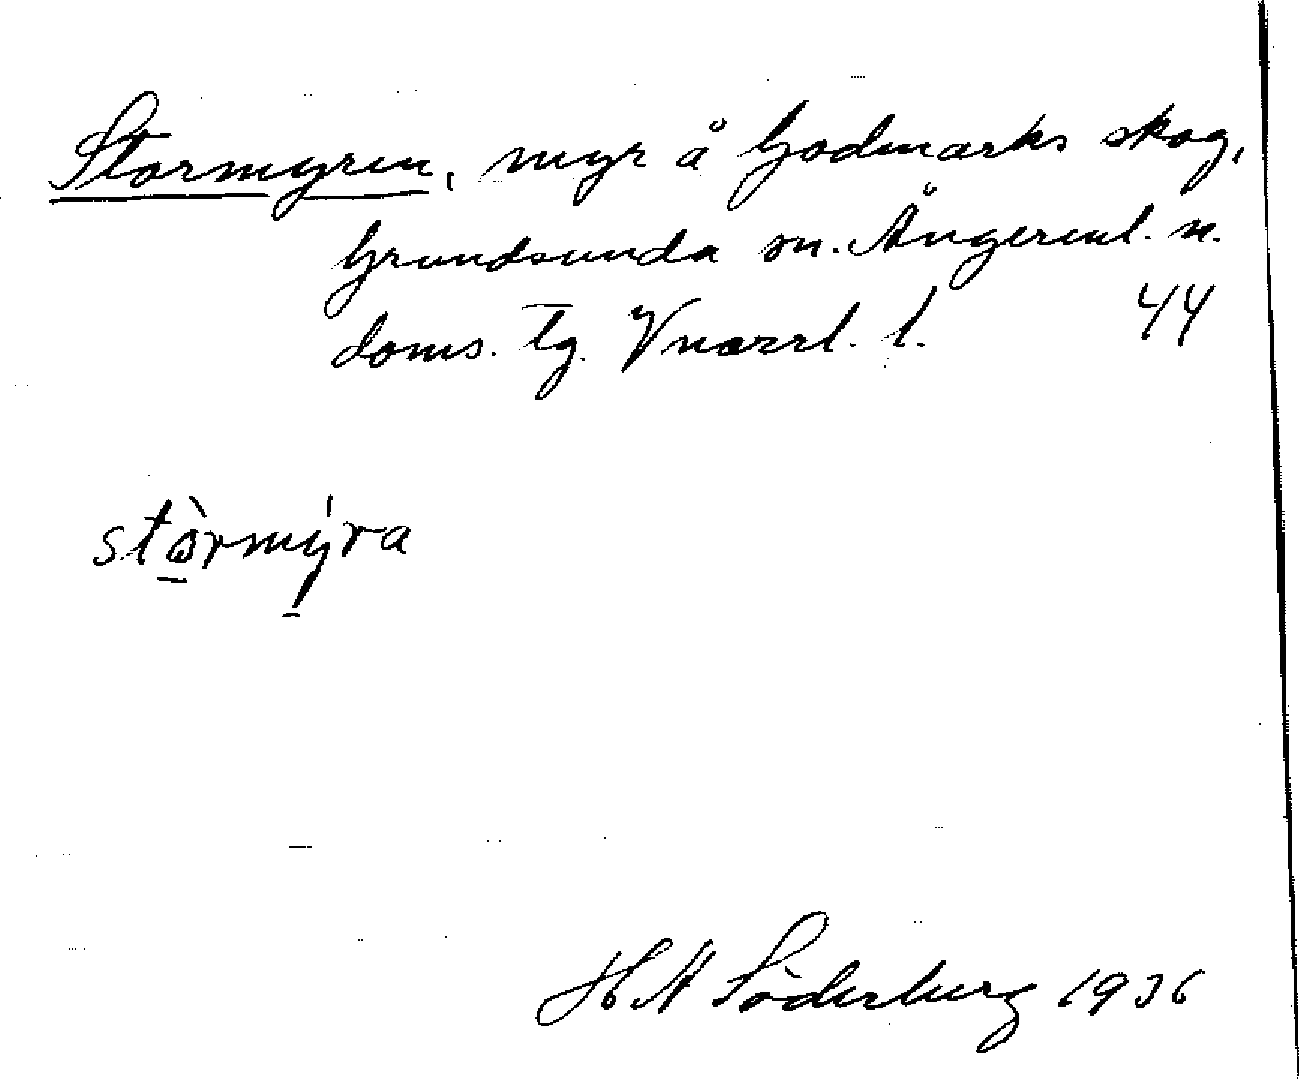 Stormyren, myr å Godmarks skog,
Grundsunda sn. Ångerml. n.
doms. tg. Vnorrl. l. 44
stòrmýra
H A Söderberg 1936